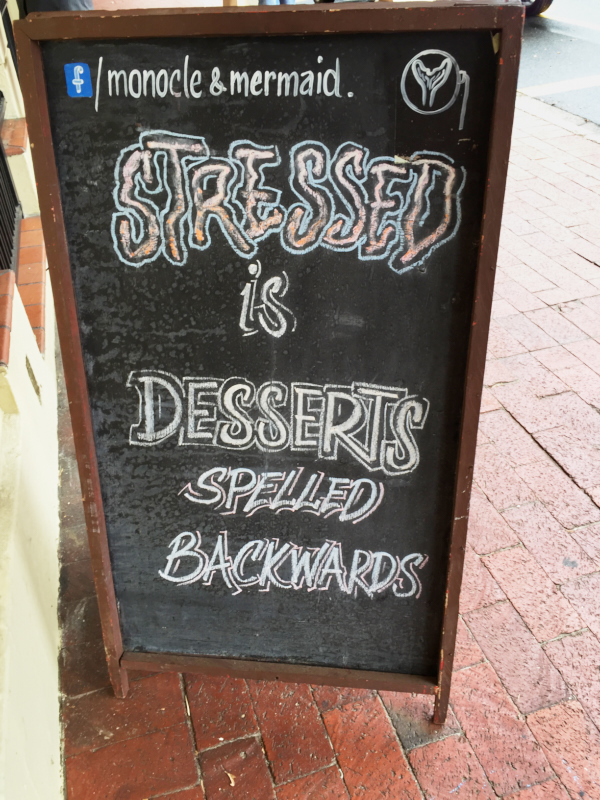 f/monocle & mermaid.
STRESSED
is
DESSERTS
SPELLED
BACKWARDS